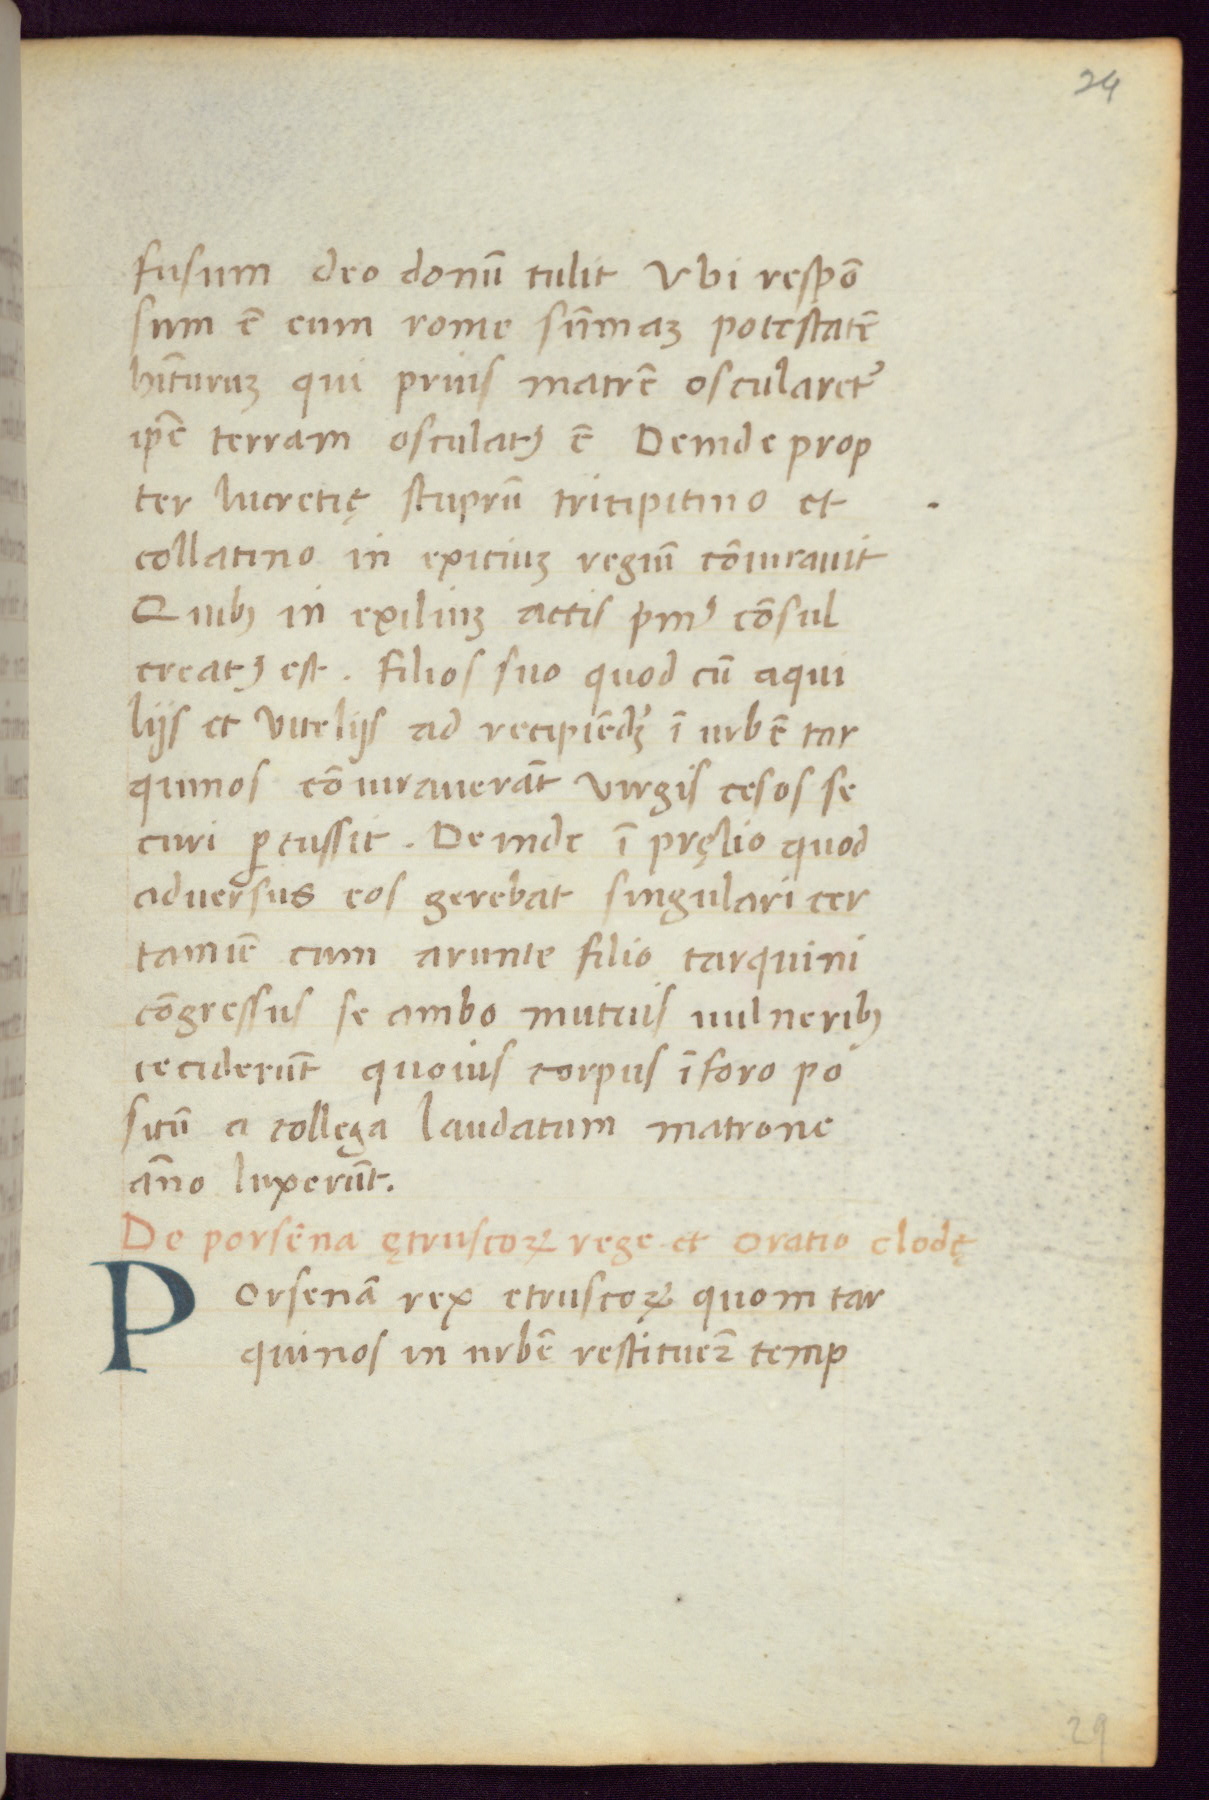 24
fusum deo donū tulit Vbi respō
sum ē eum rome sūmaꝫ potestatē
hīturuꝫ qui prius matrē oscularet᷑
ip̄e terram osculatꝰ ē Deinde prop
ter lucretię stuprū tricipitino et
collatino in exiciuꝫ regiū cōiurauit
Quibꝰ in exiliuꝫ actis pmꝰ cōsul
creatꝰ est. filios suo quod cū aqui
lijs et Vitelijs ad recipiēdꝫ ī urbē tar
quinos cōiurauerāt Virgis cesos se
curi ꝑcussit. Deinde ī pręlio quod
aduersus eos gerebat singulari cer
tamiē cum arunte filio tarquini
cōgressus se ambo mutuis uulneribꝰ
ceciderūt quoius corpus ī foro po
sitū a collega laudatum matrone
āno luxerūt.
De porsēna ętruscoꝝ rege et oratio clodę
Porsenā rex etruscoꝝ quom tar
quinos in urbē restituer̄ temp
29